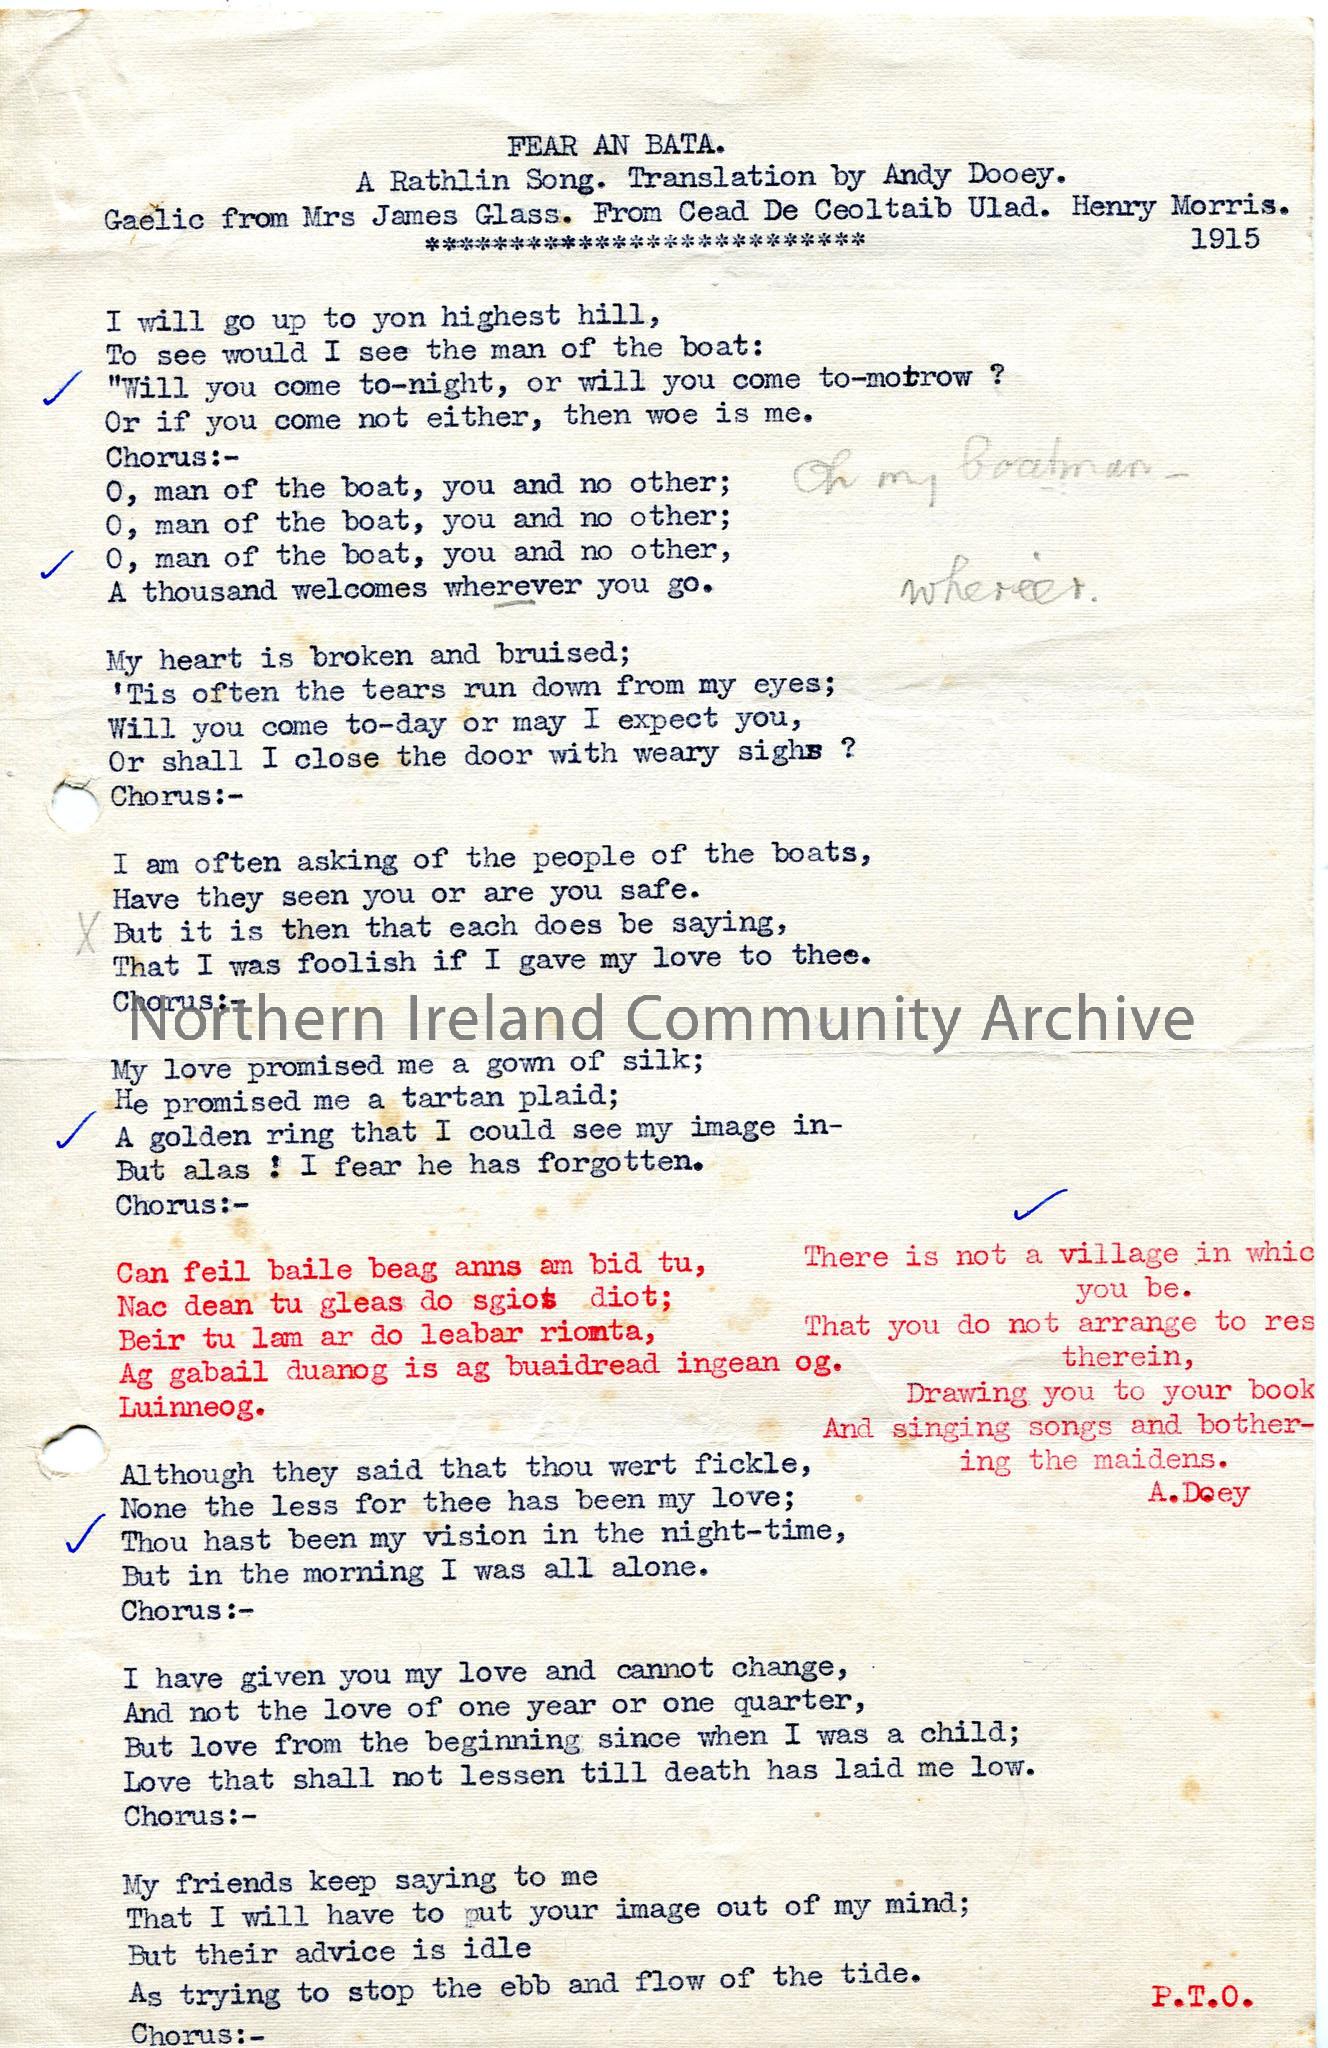 FEAR AN BATA.
A Rathlin Song. Translation by Andy Dooey.
Gaelic from Mrs James Glass. From Cead De Ceoltaib Ulad. Henry Morris.
************************** 1915
I will go up to yon highest hill,
To see would I see the man of the boat:
"Will you come to-night, or will you come to-motrow ?
Or if you come not either, then woe is me.
Chorus:-
O, man of the boat, you and no other;
Oh my boatman-
O, man of the boat, you and no other;
O, man of the boat, you and no other,
A thousand welcomes wherever you go.
where'er.
My heart is broken and bruised;
'Tis often the tears run down from my eyes;
Will you come to-day or may I expect you,
Or shall I close the door with weary sighs ?
Chorus:-
I am often asking of the people of the boats,
Have they seen you or are you safe.
X But it is then that each does be saying,
That I was foolish if I gave my love to thee.
Chorus:-
Northern Ireland Community Archive
My love promised me a gown of silk;
He promised me a tartan plaid;
A golden ring that I could see my image in-
But alas ! I fear he has forgotten.
Chorus:-
Can feil baile beag anns am bid tu,
Nac dean tu gleas do sgios diot;
Beir tu lam ar do leabar riomta,
Ag gabail duanog is ag buaidread ingean og.
Luinneog.
There is not a village in whic
you be.
That you do not arrange to res
therein,
Drawing you to your book
And singing songs and bother-
ing the maidens.
A.Doey
Although they said that thou wert fickle,
None the less for thee has been my love;
Thou hast been my vision in the night-time,
But in the morning I was all alone.
Chorus:-
I have given you my love and cannot change,
And not the love of one year or one quarter,
But love from the beginning since when I was a child;
Love that shall not lessen till death has laid me low.
Chorus:-
My friends keep saying to me
That I will have to put your image out of my mind;
But their advice is idle
As trying to stop the ebb and flow of the tide.
P.T.O.
Chorus:-